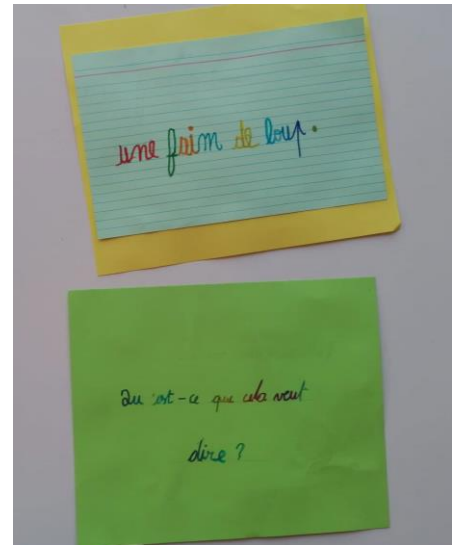 une faim de loup.
Qu'est-ce que cela veut
dire ?